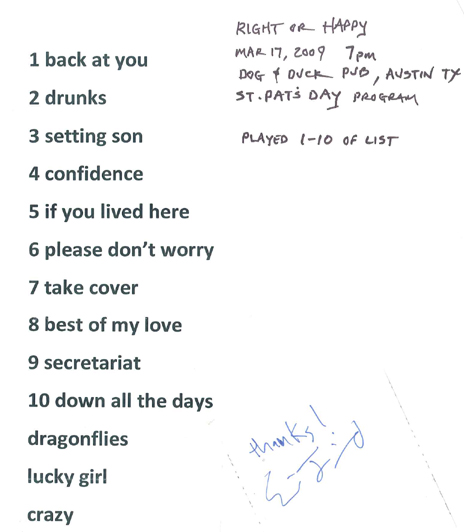 RIGHT OR HAPPY
MAR 17, 2009 7pm
DOG & DUCK PUB, AUSTIN TX
ST. PAT'S DAY PROGRAM
PLAYED 1-10 OF LIST
1 back at you
2 drunks
3 setting son
4 confidence
5 if you lived here
6 please don't worry
7 take cover
8 best of my love
9 secretariat
10 down all the days
dragonflies
lucky girl
crazy
thanks!